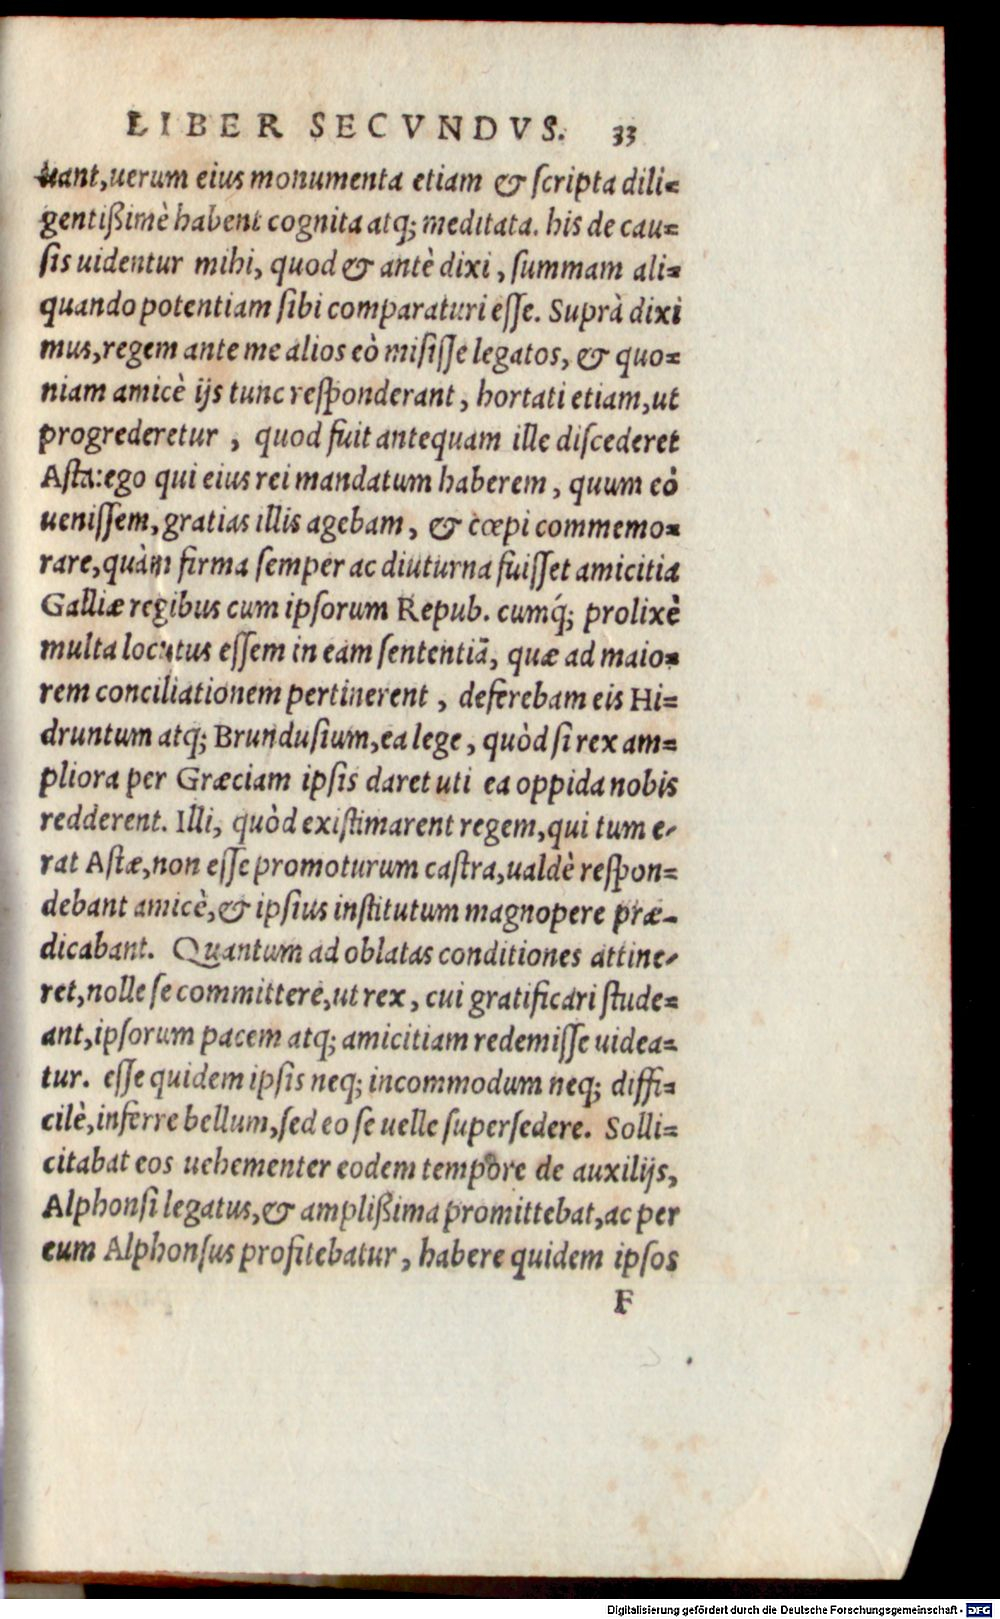 LIBER SECVNDVS. 33
uant, uerum eius monumenta etiam & scripta dili=
gentißimè habent cognita atq; meditata. his de cau=
sis uidentur mihi, quod & antè dixi, summam ali=
quando potentiam sibi comparaturi esse. Suprà dixi
mus, regem ante me alios eò misisse legatos, & quo=
niam amicè ijs tunc responderant, hortati etiam, ut
progrederetur, quod fuit antequam ille discederet
Asta: ego qui eius rei mandatum haberem, quum eò
uenissem, gratias illis agebam, & cœpi commemo=
rare, quàm firma semper ac diuturna fuisset amicitia
Galliæ regibus cum ipsorum Repub. cumq́; prolixè
multa locutus essem in eam sententiã, quæ ad maio=
rem conciliationem pertinerent, deferebam eis Hi=
druntum atq; Brundusium, ea lege, quòd si rex am=
pliora per Græciam ipsis daret uti ea oppida nobis
redderent. Illi, quòd existimarent regem, qui tum e-
rat Astæ, non esse promoturum castra, ualdè respon=
debant amicè, & ipsius institutum magnopere præ-
dicabant. Quantum ad oblatas conditiones attine-
ret, nolle se committere, ut rex, cui gratificari stude=
ant, ipsorum pacem atq; amicitiam redemisse uidea=
tur. esse quidem ipsis neq; incommodum neq; diffi=
cilè, inferre bellum, sed eo se uelle supersedere. Solli=
citabat eos uehementer eodem tempore de auxilijs,
Alphonsi legatus, & amplißima promittebat, ac per
eum Alphonsus profitebatur, habere quidem ipsos
F
Digitalisierung gefördert durch die Deutsche Forschungsgemeinschaft - DFG